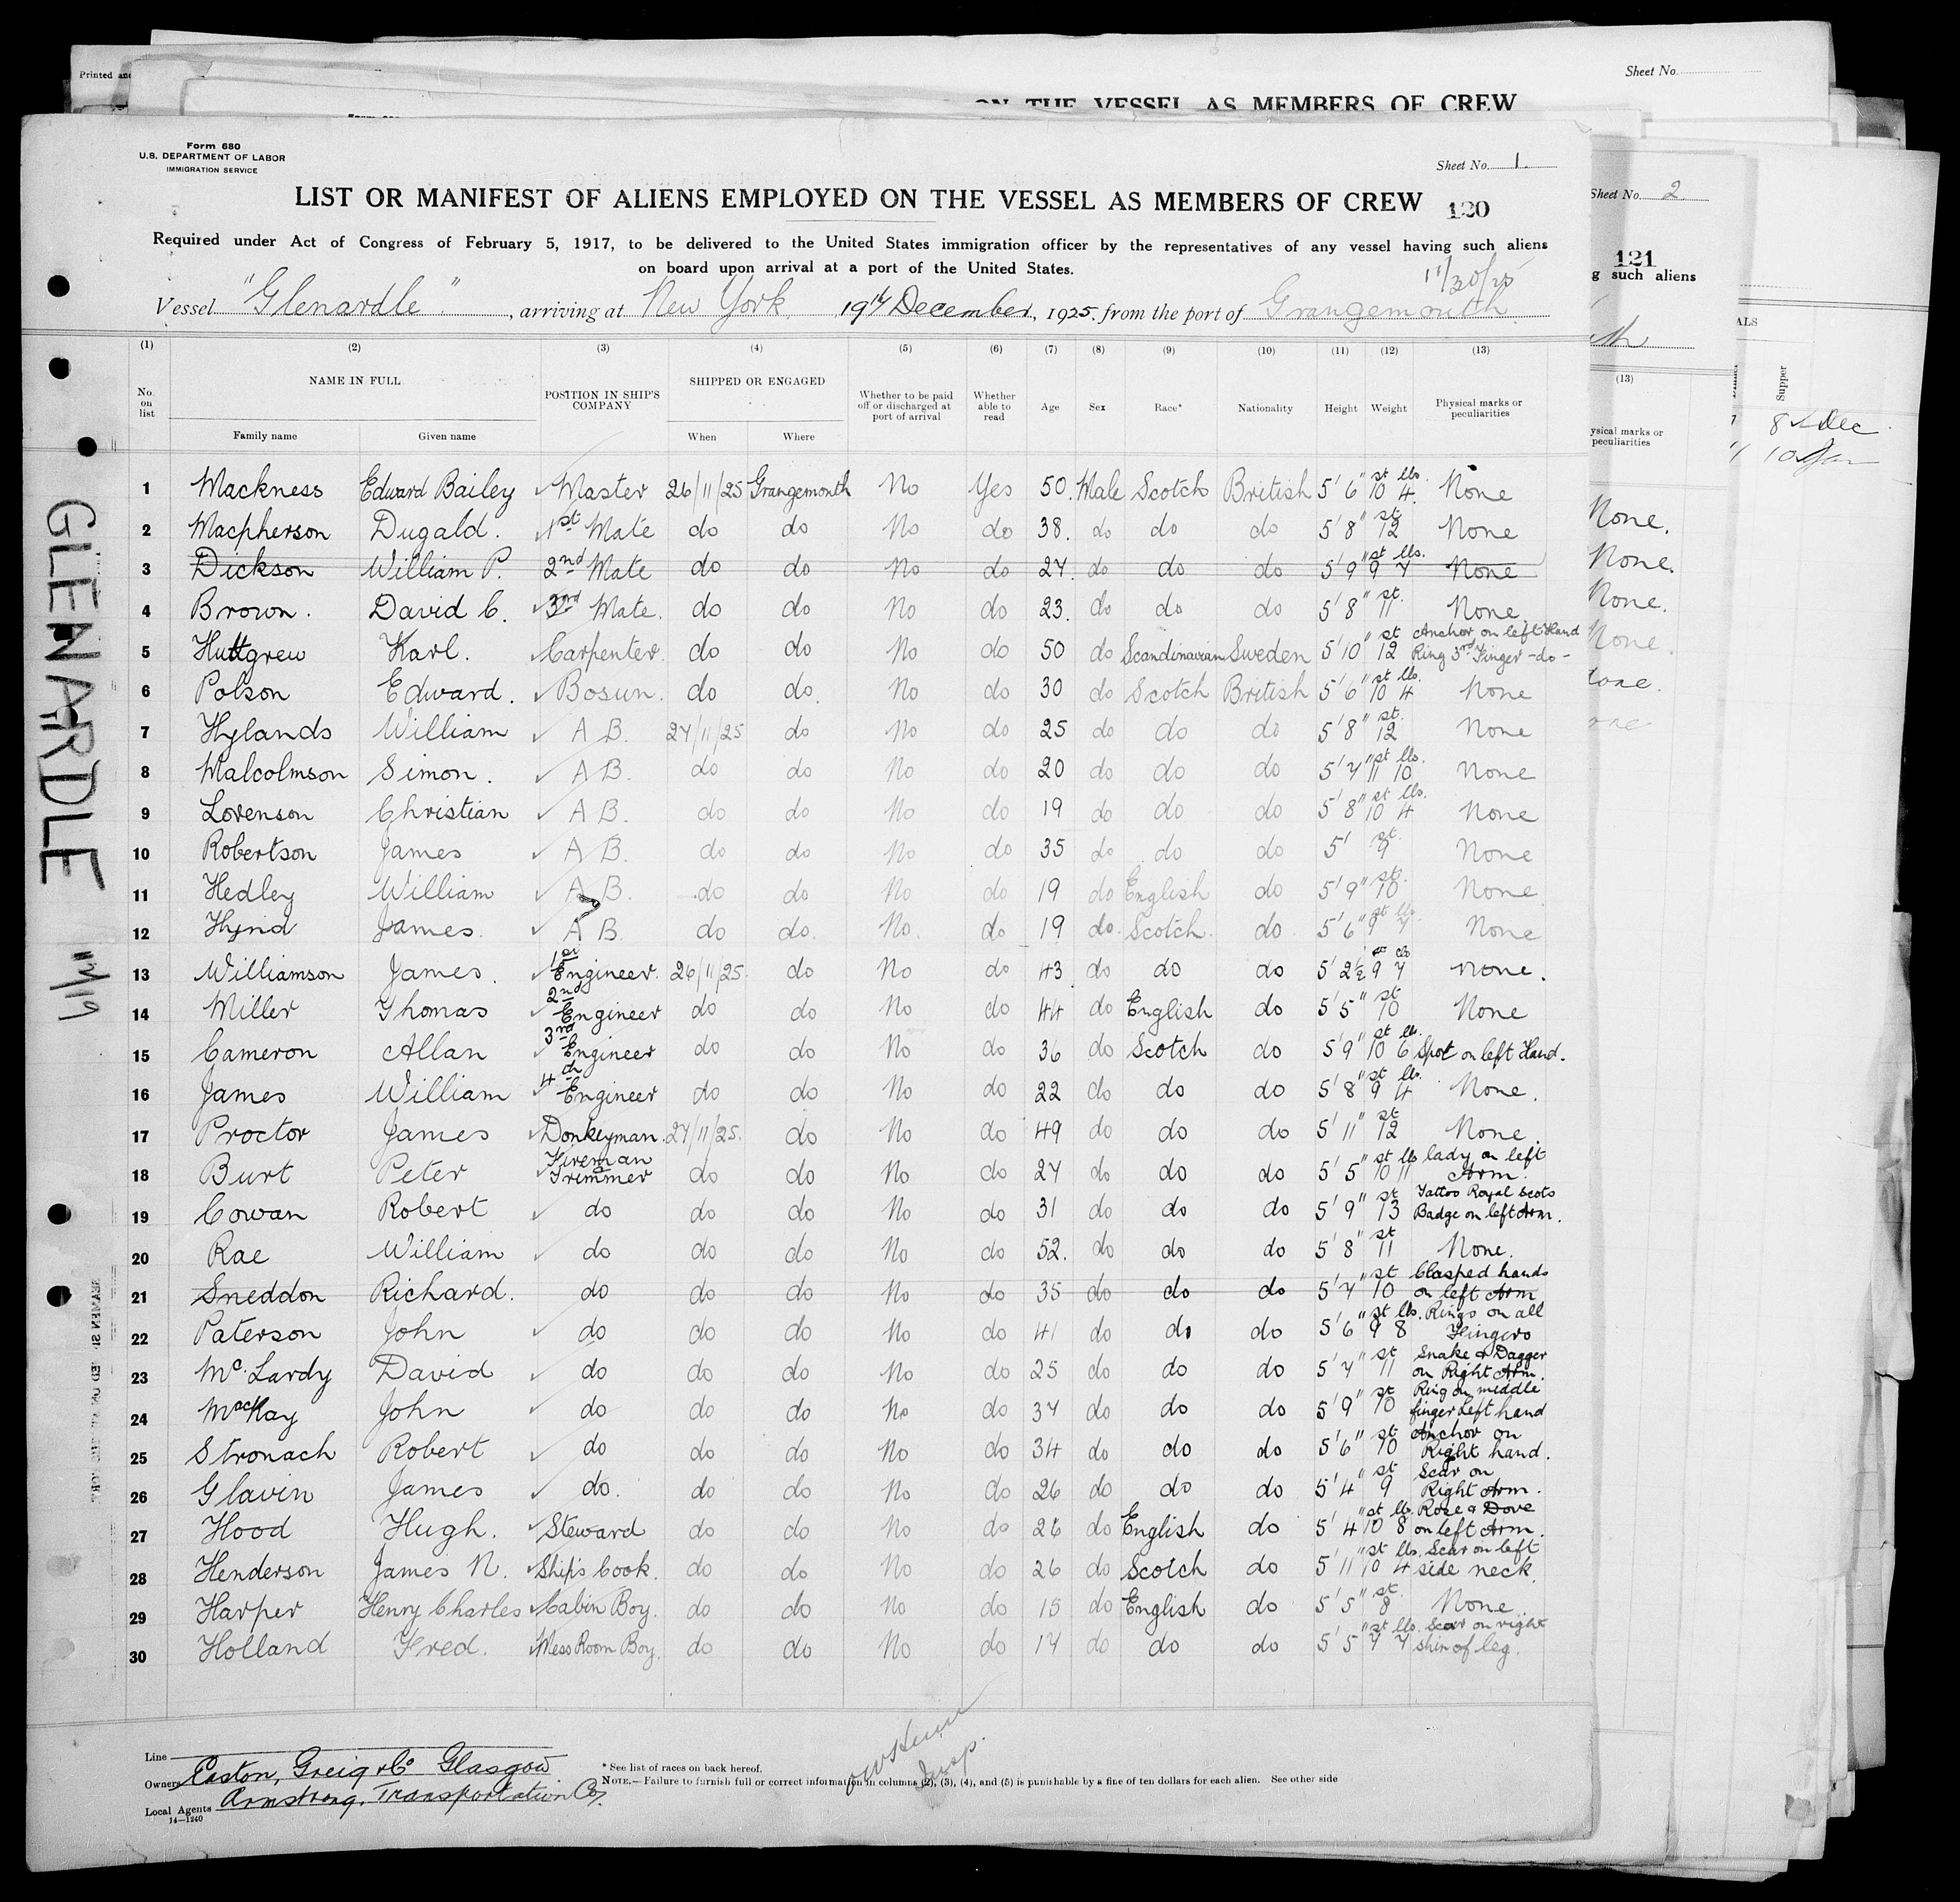 Printed and
Sheet No.
ON THE VESSEL AS MEMBERS OF CREW
Form 680
U.S. DEPARTMENT OF LABOR
IMMIGRATION SERVICE
Sheet No. 1.
LIST OR MANIFEST OF ALIENS EMPLOYED ON THE VESSEL AS MEMBERS OF CREW 120
Required under Act of Congress of February 5, 1917, to be delivered to the United States immigration officer by the representatives of any vessel having such aliens
on board upon arrival at a port of the United States.
11/30/25
Vessel "Glenardle", arriving at New York, 19th December, 1925. from the port of Grangemouth
(1) (2) (3) (4) (5) (6) (7) (8) (9) (10) (11) (12) (13)
No. on list NAME IN FULL Family name Given name POSITION IN SHIP'S COMPANY SHIPPED OR ENGAGED When Where Whether to be paid off or discharged at port of arrival Whether able to read Age Sex Race* Nationality Height Weight Physical marks or peculiarities
1 Mackness Edward Bailey Master 26/11/25 Grangemouth No Yes 50. Male Scotch British 5' 6" 10 st 4 lbs. None
2 Macpherson Dugald. 1st Mate do do No do 38. do do do 5' 8" 12 st None
3 Dickson William P. 2nd Mate do do No do 27. do do do 5' 9" 9 st 7 lbs. None
4 Brown. David C. 3rd Mate. do do No do 23. do do do 5' 8" 11 st. None
5 Huttgrew Karl. Carpenter. do do No do 50 do Scandinavian Sweden 5' 10" 12 st Anchor on left Hand Ring 3rd Finger -do-
6 Polson Edward. Bosun. do do. No do 30 do Scotch British 5' 6" 10 st 4 lbs. None
7 Hylands William A B. 27/11/25 do No do 25 do do do 5' 8" 12 st. None
8 Malcolmson Simon. A B. do do No do 20 do do do 5' 7" 11 st 10 lbs. None
9 Lorenson Christian A B. do do No do 19 do do do 5' 8" 10 st 4 lbs. None
10 Robertson James A B. do do No do 35 do do do 5' 9 st. None
11 Hedley William A B. do do No do 19 do English do 5' 9" 10 st. None
12 Hynd James. A B. do do. No. do 19 do. Scotch. do 5' 6" 9 st 7 lbs None
13 Williamson James. 1st Engineer. 26/11/25. do No do 43 do do do 5' 2½ 9 7 None.
14 Miller Thomas 2nd Engineer do do No do 44 do English do 5' 5" 10 st None
15 Cameron Allan 3rd Engineer do do No do 36 do Scotch do 5' 9" 10 st 6 lb. Spot on left Hand.
16 James William 4th Engineer do do No do 22 do do do 5' 8" 9 st 4 lbs. None.
17 Proctor James Donkeyman. 27/11/25. do No do 49 do do do 5' 11" 12 st None.
18 Burt Peter Fireman & Trimmer do do No do 27 do do do 5' 5" 10 st 11 lb lady on left Arm.
19 Cowan Robert do do do No do 31 do do do 5' 9" 13 st Tattoo Royal Scots Badge on left Arm.
20 Rae William do do do No do 52. do do do 5' 8" 11 st None.
21 Sneddon Richard. do do do No do 35 do do do 5' 7" 10 st Clasped hands on left Arm
22 Paterson John do do do No do 41 do do do 5' 6" 9 st 8 lb. Rings on all Fingers
23 Mc. Lardy David do do do No do 25 do do do 5' 7" 11 st Snake & Dagger on Right Arm.
24 MacKay John do do do No do 37 do do do 5' 9" 10 st Ring on middle finger Left hand
25 Stronach Robert do do do No do 34 do do do 5' 6" 10 st Anchor on Right hand.
26 Glavin James do. do do No do 26 do do do 5' 4" 9 st Scar on Right Arm.
27 Hood Hugh. Steward do do No do 26 do English do 5' 4" 10 st 8 lb. Rose & Dove on left Arm.
28 Henderson James N. Ship's Cook. do do No do 26 do Scotch do 5' 11" 10 st 4 lb. Scar on left side neck.
29 Harper Henry Charles Cabin Boy. do do No do 15 do English do 5' 5" 8 st. None
30 Holland Fred. Mess Room Boy. do do No do 17 do do do 5' 5" 7 st 7 lbs. Scar on right shin of leg.
Line
Owners Easton, Greig & Co Glasgow
Local Agents Armstrong, Transportation Co.
14—1240
* See list of races on back hereof.
NOTE.—Failure to furnish full or correct information in columns (2), (3), (4), and (5) is punishable by a fine of ten dollars for each alien. See other side
Insp.
GLENARDLE 12/19
Sheet No. 2.
121
g such aliens
(13)
ysical marks or
peculiarities
None.
None.
None.
None.
None.
ALS
Supper
8 Dec